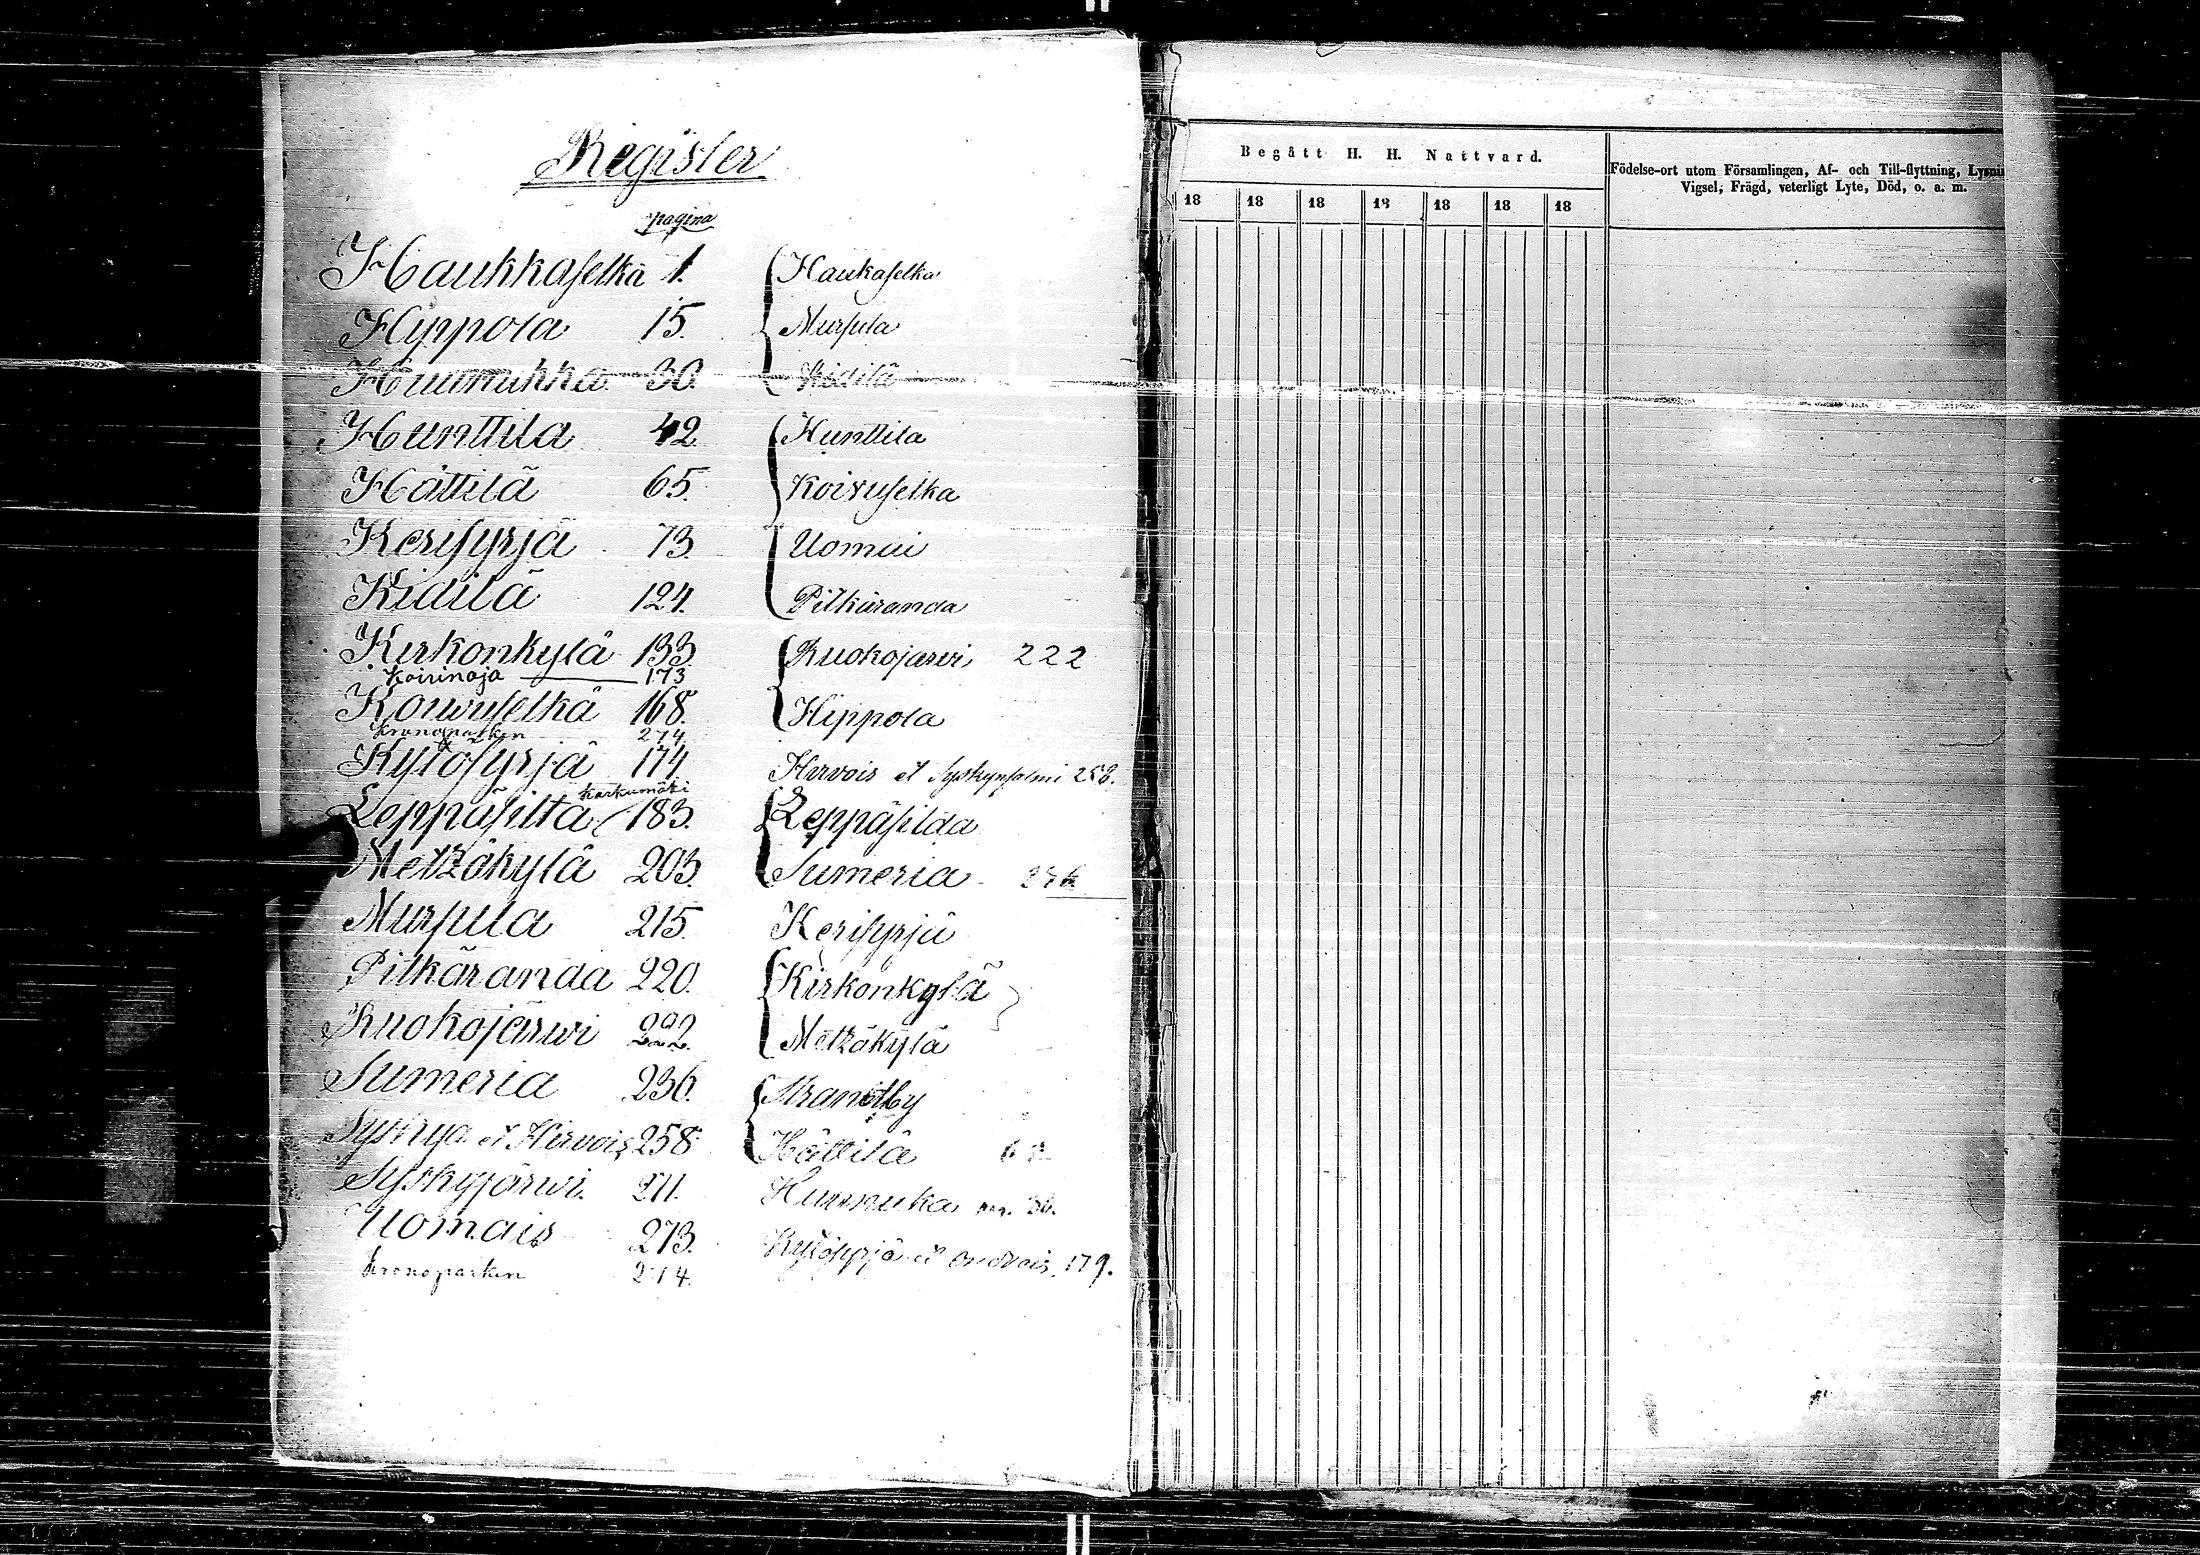 Register
pagina
Haukkaselkä 1.
Hippola 15.
Huunukka 30.
Hunttila 42
Hättilä 65.
Kerisyrjä 73.
Kidilä 124.
Kirkonkylä 133.
Koirinoja 173
Koivuselkä 168.
Kronoparken 274
Kytösyrjä 174
Karkumäki
Leppäsilta 183.
Metzäkylä 203.
Mursula 215.
Pitkäranda 220.
Ruokojärwi 222.
Sumeria 236.
Syskyä et Hirvois 258.
Syskyjärwi. 271.
Uomais 273.
Kronoparken 274.
Haukaselka
Mursula
Kidilä
Hunttila
Koivuselka
Uomai
Pitkäranda
Ruokojarvi 222
Hippola
Hirvois et Syskynsalmi 258.
Leppäsilda
Sumeria
Kerisyrjä
Kirkonkylä
Metzäkylä
Strandby
Hättilä
Hunnuka pag. 30.
Kytösyrjä et Ondrois. 179.
Begått H. H. Nattvard.
18 18 18 18 18 18 18
Födelse-ort utom Församlingen, Af- och Till-flyttning,
Vigsel, Frägd, veterligt Lyte, Död, o. a. m.